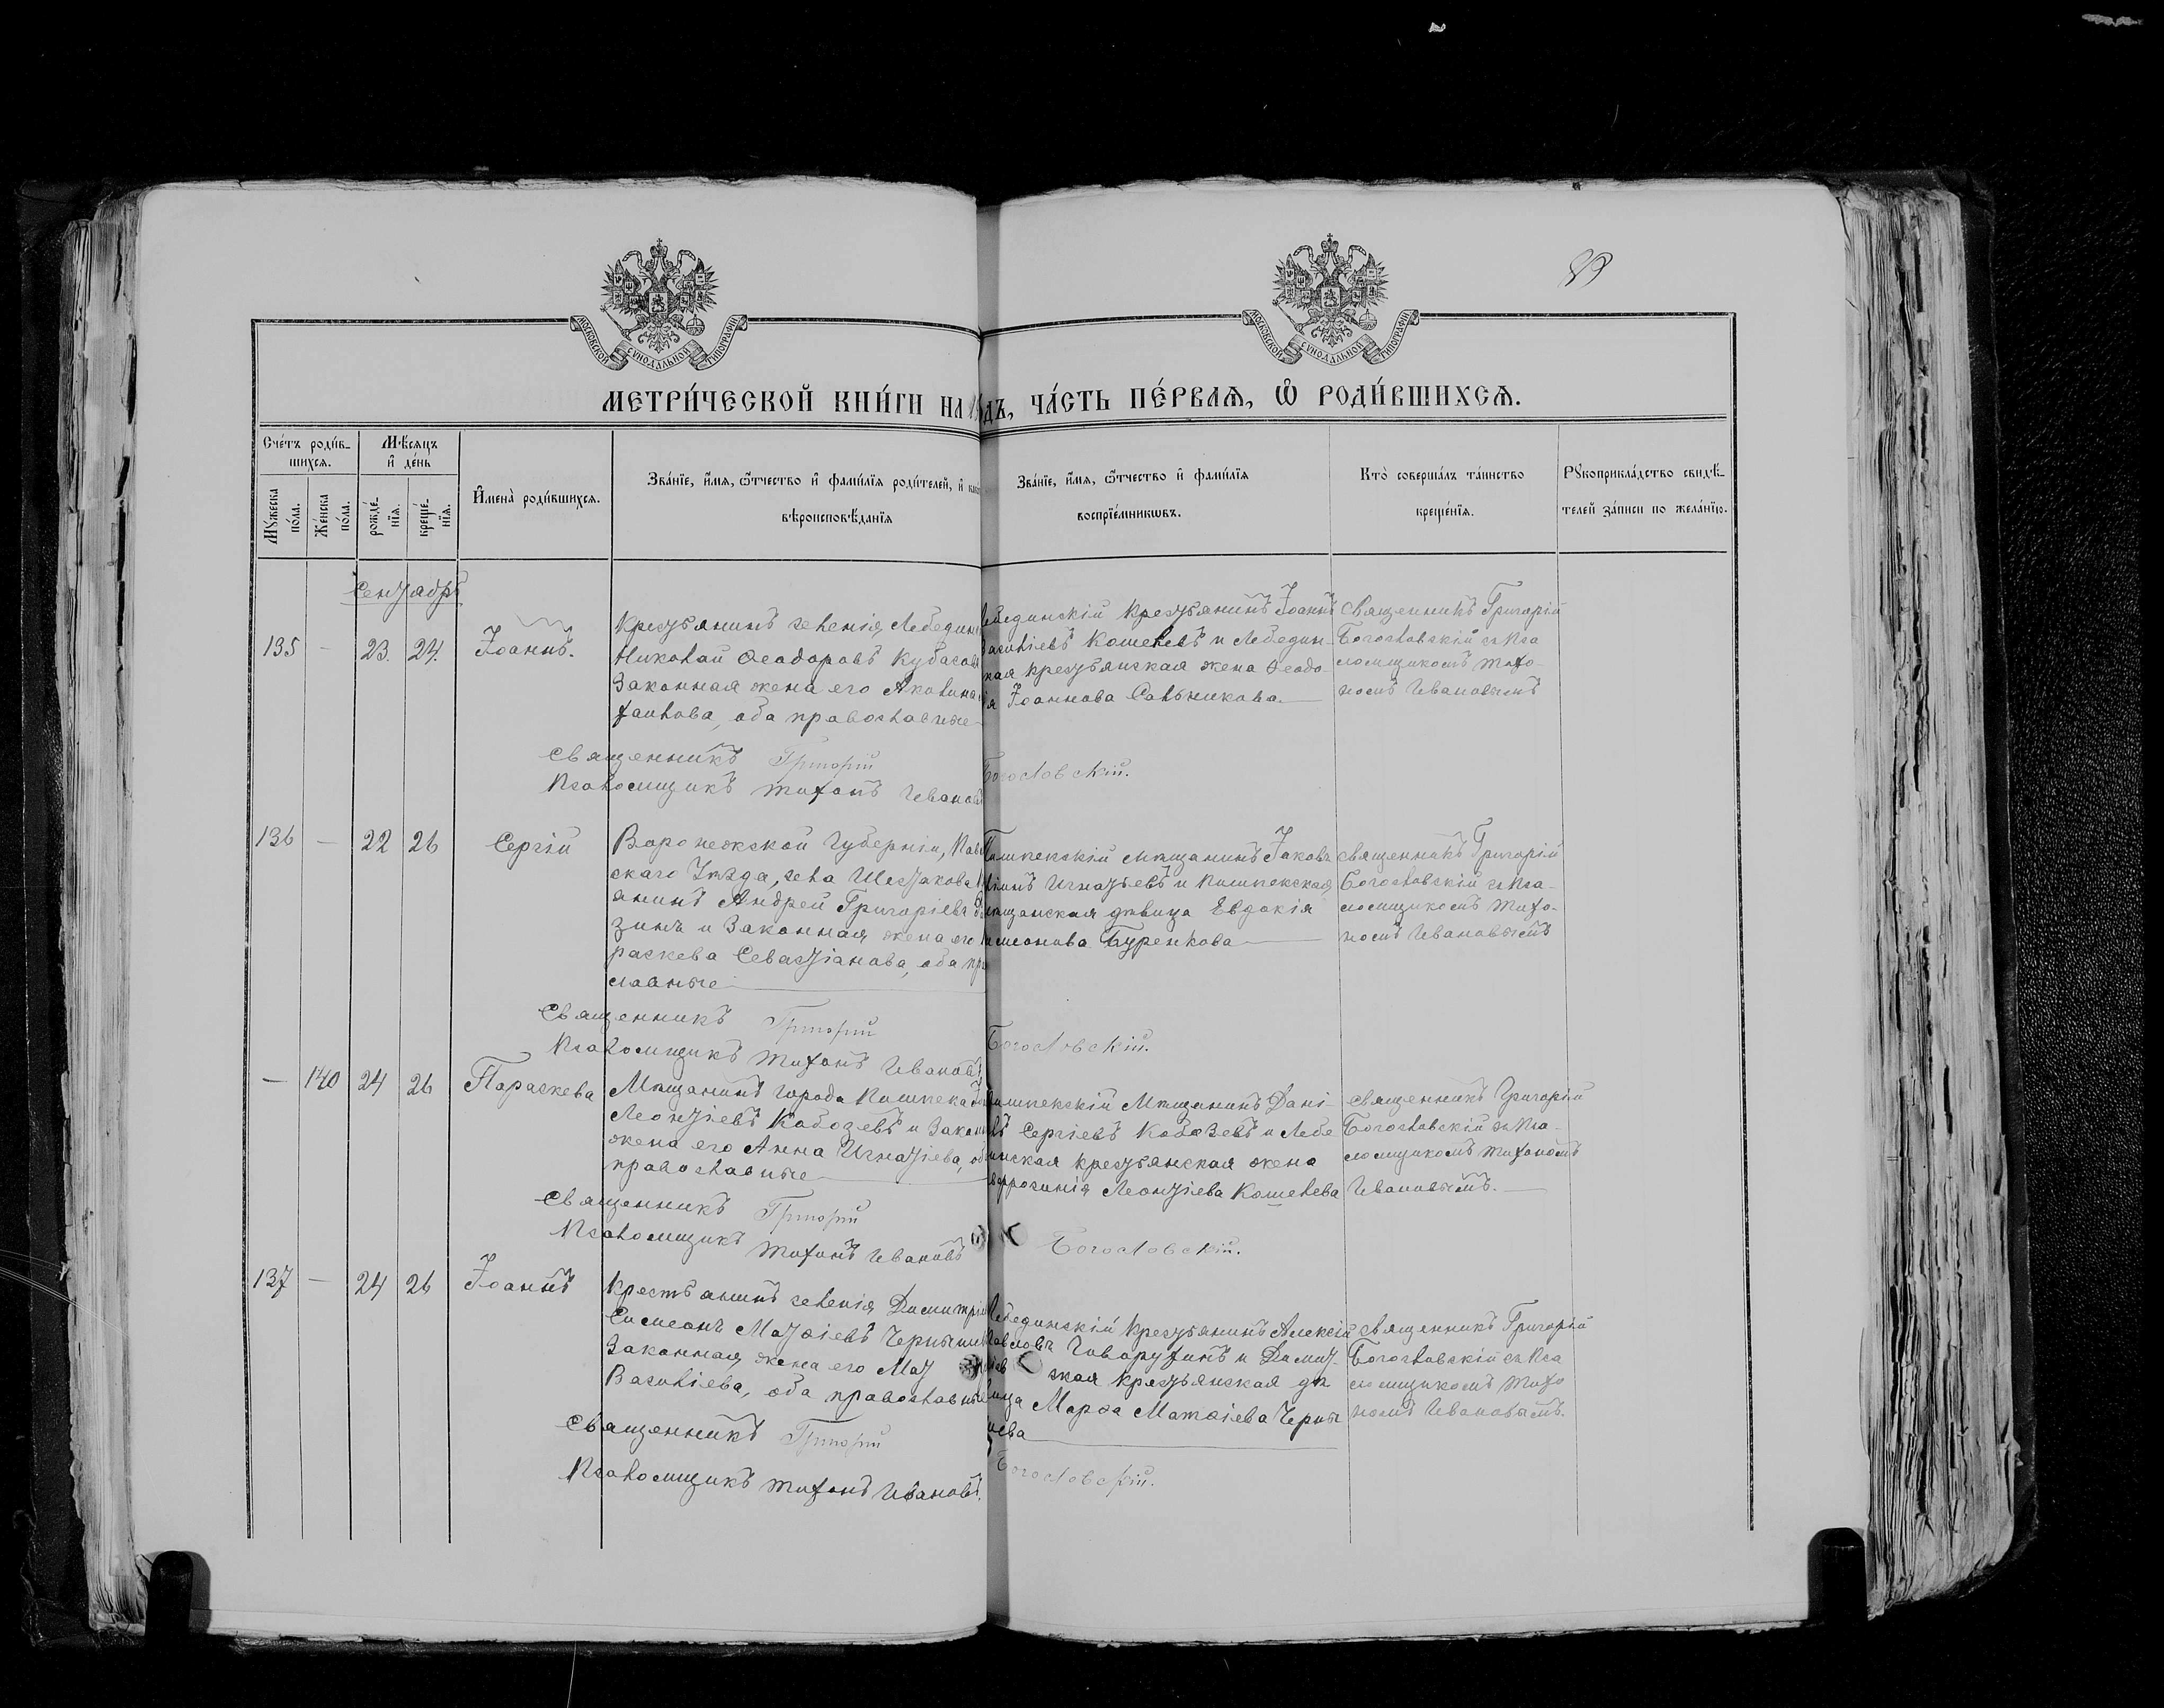 МОСКОВСКОЙ СѴНОДАЛЬНОЙ ТИПОГРАФІИ
МОСКОВСКОЙ СѴНОДАЛЬНОЙ ТИПОГРАФІИ
МЕТРИ́ЧЕСКОЙ КНИ́ГИ НА
ДЪ, ЧА́СТЬ ПЕ́РВАѦ, Ѿ РОДИ́ВШИХСѦ.
Сче́тъ роди́в-
шихсѧ.
Мꙋ́жеска по́ла.
Же́нска по́ла.
Мѣ́сѧцъ
и҆ де́нь
рожде́-
нїѧ.
креще́-
нїѧ.
И҆мена̀ роди́вшихсѧ.
Зва́нїе, и҆́мѧ, ѻ҆́тчество и҆ фами́лїѧ роди́телей, и҆
вѣроисповѣ́данїѧ
Зва́нїе, и҆́мѧ, ѻ҆́тчество и҆ фами́лїѧ
воспрїе́мникѡвъ.
Кто̀ соверша́лъ та́инство
креще́нїѧ.
Рꙋкоприкла́дство свидѣ́-
телей за́писи по жела́нїю.
Сентябрь
135 — 23. 24. Іоаннъ.
Крестьянинъ селенія Лебедин
Николай Ѳеодоровъ Кубасовъ
Законная жена его Акилина
фаилова, оба православные
лебединскій крестьянинъ Іоаннъ
Васильевъ Кошелевъ и Лебедин-
ская крестьянская жена Ѳеодо-
я Іоаннова Сальникова.
Священникъ Григорій
Богославскій съ Пса
ломщикомъ Тихо-
номъ Ивановымъ
Священникъ Григорій Богословскій.
Псаломщикъ Тихонъ Ивановъ
136 — 22 26 Сергій
Воронежской Губерніи, Пав
скаго Уѣзда, села Шестакова
янинъ Андрей Григоріевъ
зинъ и Законная жена его
раскева Севастіанова, оба пра
славные
Пишпекскій мѣщанинъ Іаковъ
Игнатьевъ и Пишпекская
мѣщанская дѣвица Евдокія
имеонова Буренкова
Священникъ Григорій
Богославскій съ Пса-
ломщикомъ Тихо-
номъ Ивановымъ
Священникъ Григорій Богословскій.
Псаломщикъ Тихонъ Ивановъ
— 140 24 26 Параскева
Мѣщанинъ города Пишпека
Леонтіевъ Кабозевъ и Закон
жена его Анна Игнатіева, об
православные
Пишпекскій Мѣщанинъ Дані-
лъ Сергіевъ Кабозевъ и Лебе
динская крестьянская жена
Евфросинія Леонтіева Кошелева
Священникъ Григорій
Богославскій съ Пса-
ломщикомъ Тихономъ
Ивановымъ.
Священникъ Григорій Богословскій.
Псаломщикъ Тихонъ Ивановъ
137 — 24 26 Іоаннъ
Крестьянинъ селенія Димитріев
Симеонъ Матѳіевъ Чернышев
Законная жена его Мат
Васильева, оба православные
Лебединскій Крестьянинъ Алексій
Павловъ Говорухинъ и Димит-
ріев ская крестьянская дѣ
вица Марѳа Матѳіева Черны
шева
Священникъ Григорій
Богославскій съ Пса
ломщикомъ Тихо
номъ Ивановымъ.
Священникъ Григорій Богословскій.
Псаломщикъ Тихонъ Ивановъ.